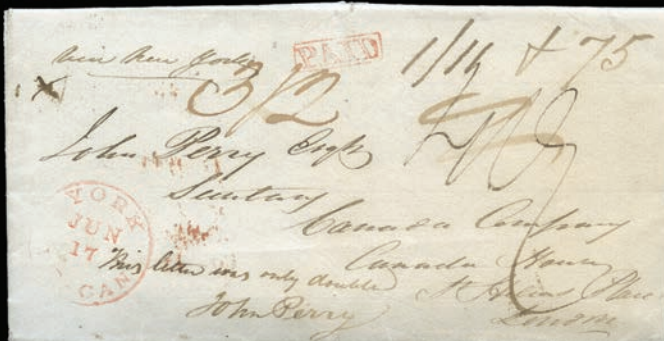 PAID
1/1
+ 75
3/2
John Perry Esqr
Canada Company
Canada House
St Helens Place
London
YORK
JUN
17
CAN
This letter was only double
John Perry